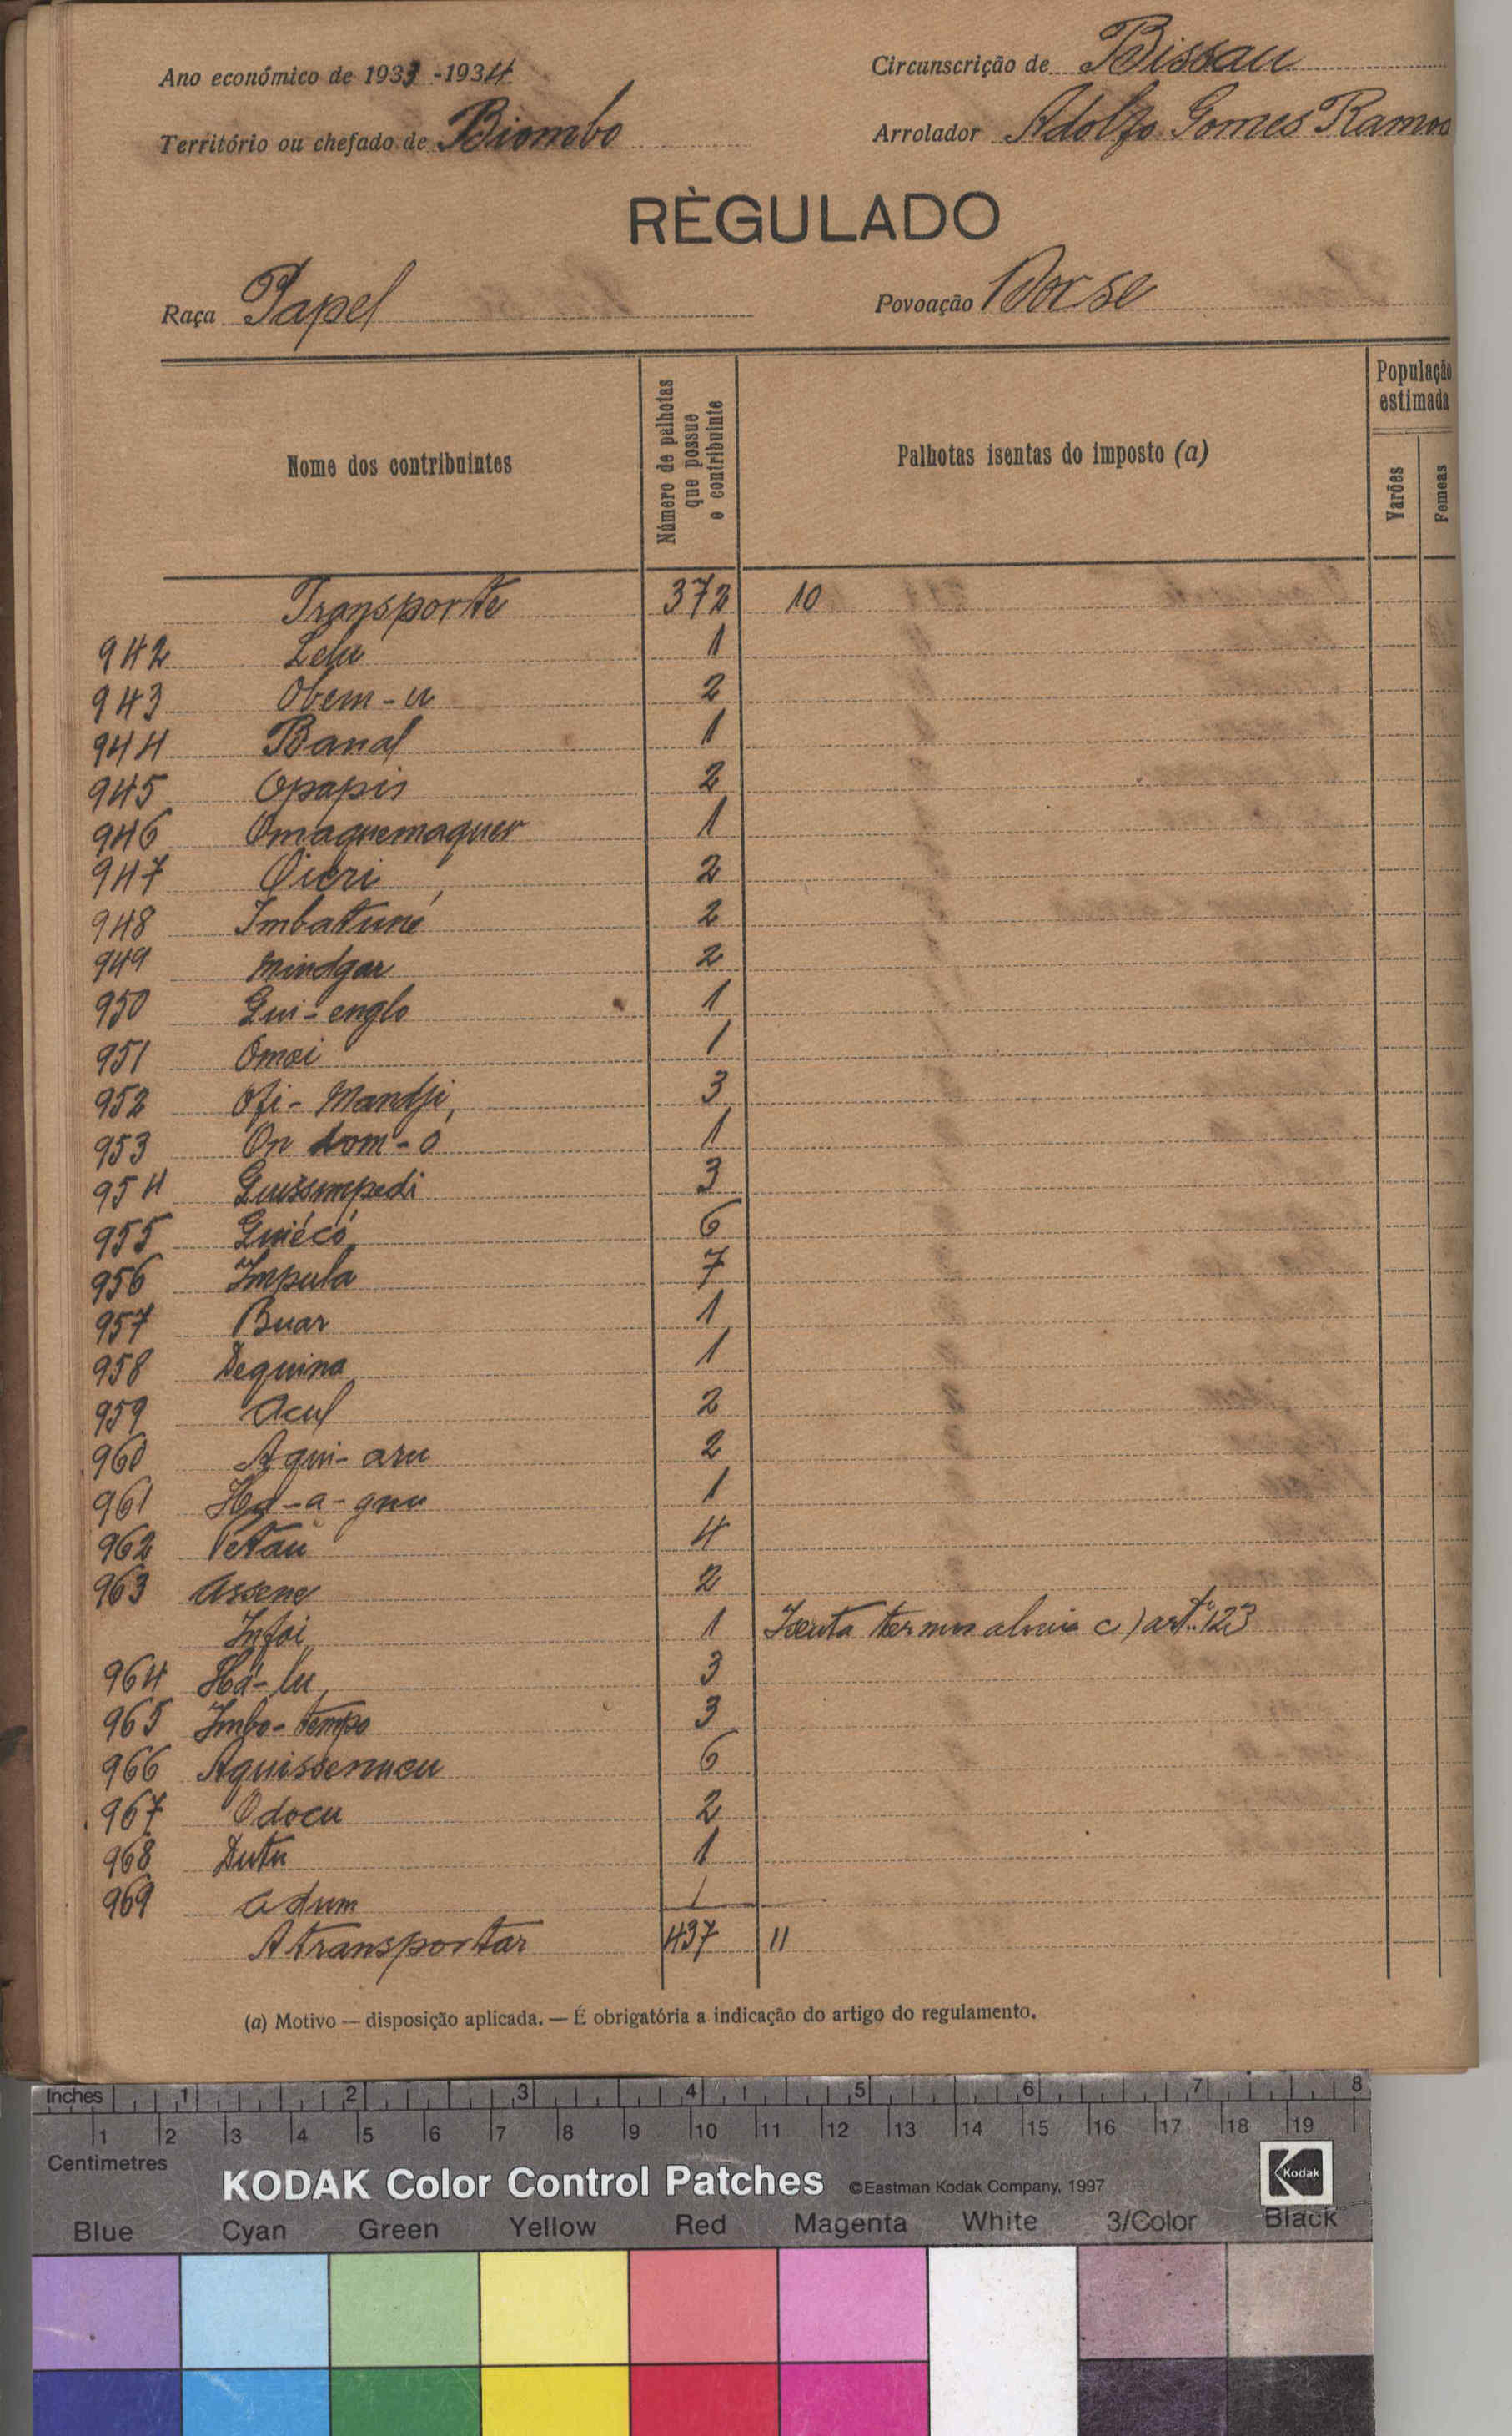 Ano económico de 1933-1934
Circunscrição de Bissau
Território ou chefado de Biombo
Arrolador Adolfo Gomes Ramos
RÈGULADO
Raça Papel
Povoação Dorse
Nome dos contribuintes
Número de palhotas que possue o contribuinte
Palhotas isentas do imposto (a)
População estimada
Varões
Femeas
Transporte 372 10
942 Lelu 1
943 Obem-u 2
944 Banal 1
945 Opapis 2
946 Omaquemaquer 1
947 Oieri 2
948 Imbatuné 2
949 Mindgar 2
950 Gui-englo 1
951 Omoi 1
952 Ofi-Mandji 3
953 On dom-ó 1
954 Guissimpedi 3
955 Guiécó 6
956 Impula 7
957 Buar 1
958 Dequina 1
959 Acul 2
960 Aqui-aru 2
961 1
962 Petau 4
963 Assene 2
Infoi 1 Isenta termos alinia c) artº 123
964 Há-lu 3
965 Imbo-tempo 3
966 6
967 Odocu 2
968 Dutu 1
969 Adum 1
A transportar 437 11
(a) Motivo — disposição aplicada. — É obrigatória a indicação do artigo do regulamento.
Inches 1 2 3 4 5 6 7 8
1 2 3 4 5 6 7 8 9 10 11 12 13 14 15 16 17 18 19
Centimetres
KODAK Color Control Patches ©Eastman Kodak Company, 1997 Kodak
Blue Cyan Green Yellow Red Magenta White 3/Color Black